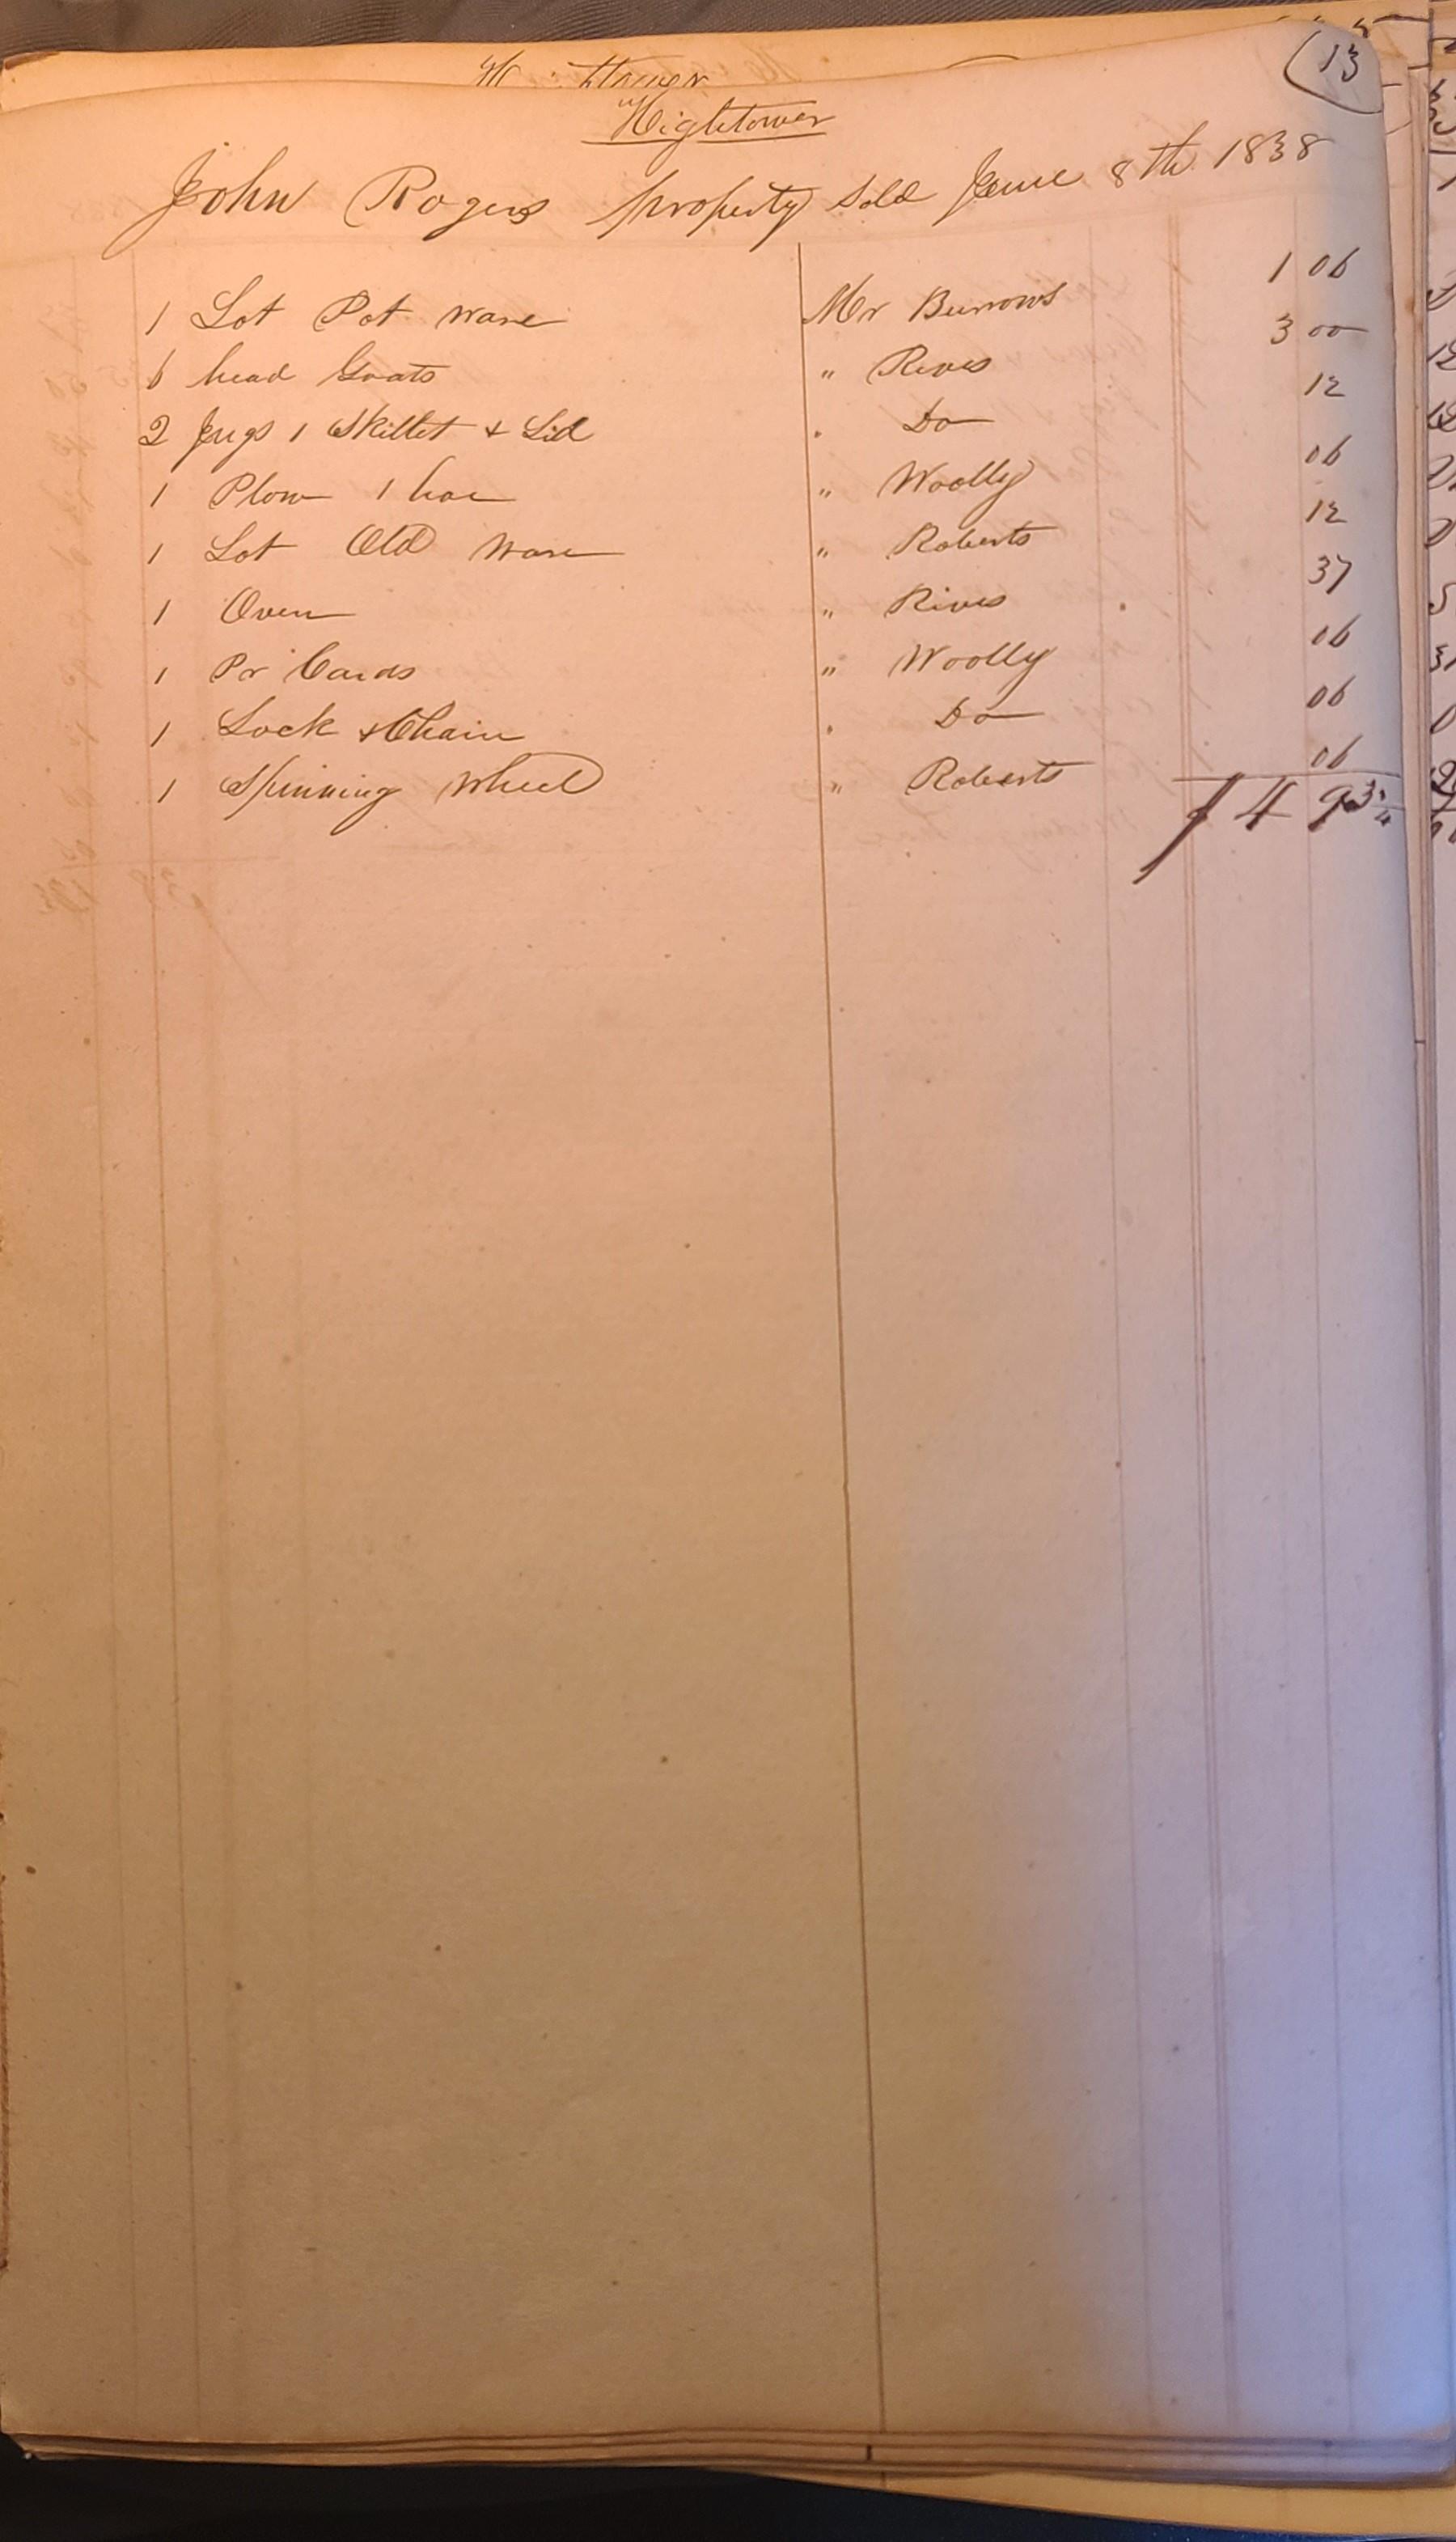 (13
Hightower
John Rogers property sold June 8th 1838
1 Lot Pot ware Mr Burrows 1 06
6 head Goats " Rives 3 00
2 Jugs 1 Skillet & Lid . Do 12
1 Plow 1 hoe " Woolly 06
1 Lot Old ware " Roberts 12
1 Oven " Rives 37
1 Pr Cards " Woolly 06
1 Lock & Chain . Do 06
1 Spinning Wheel " Roberts 06
4 93 3/4